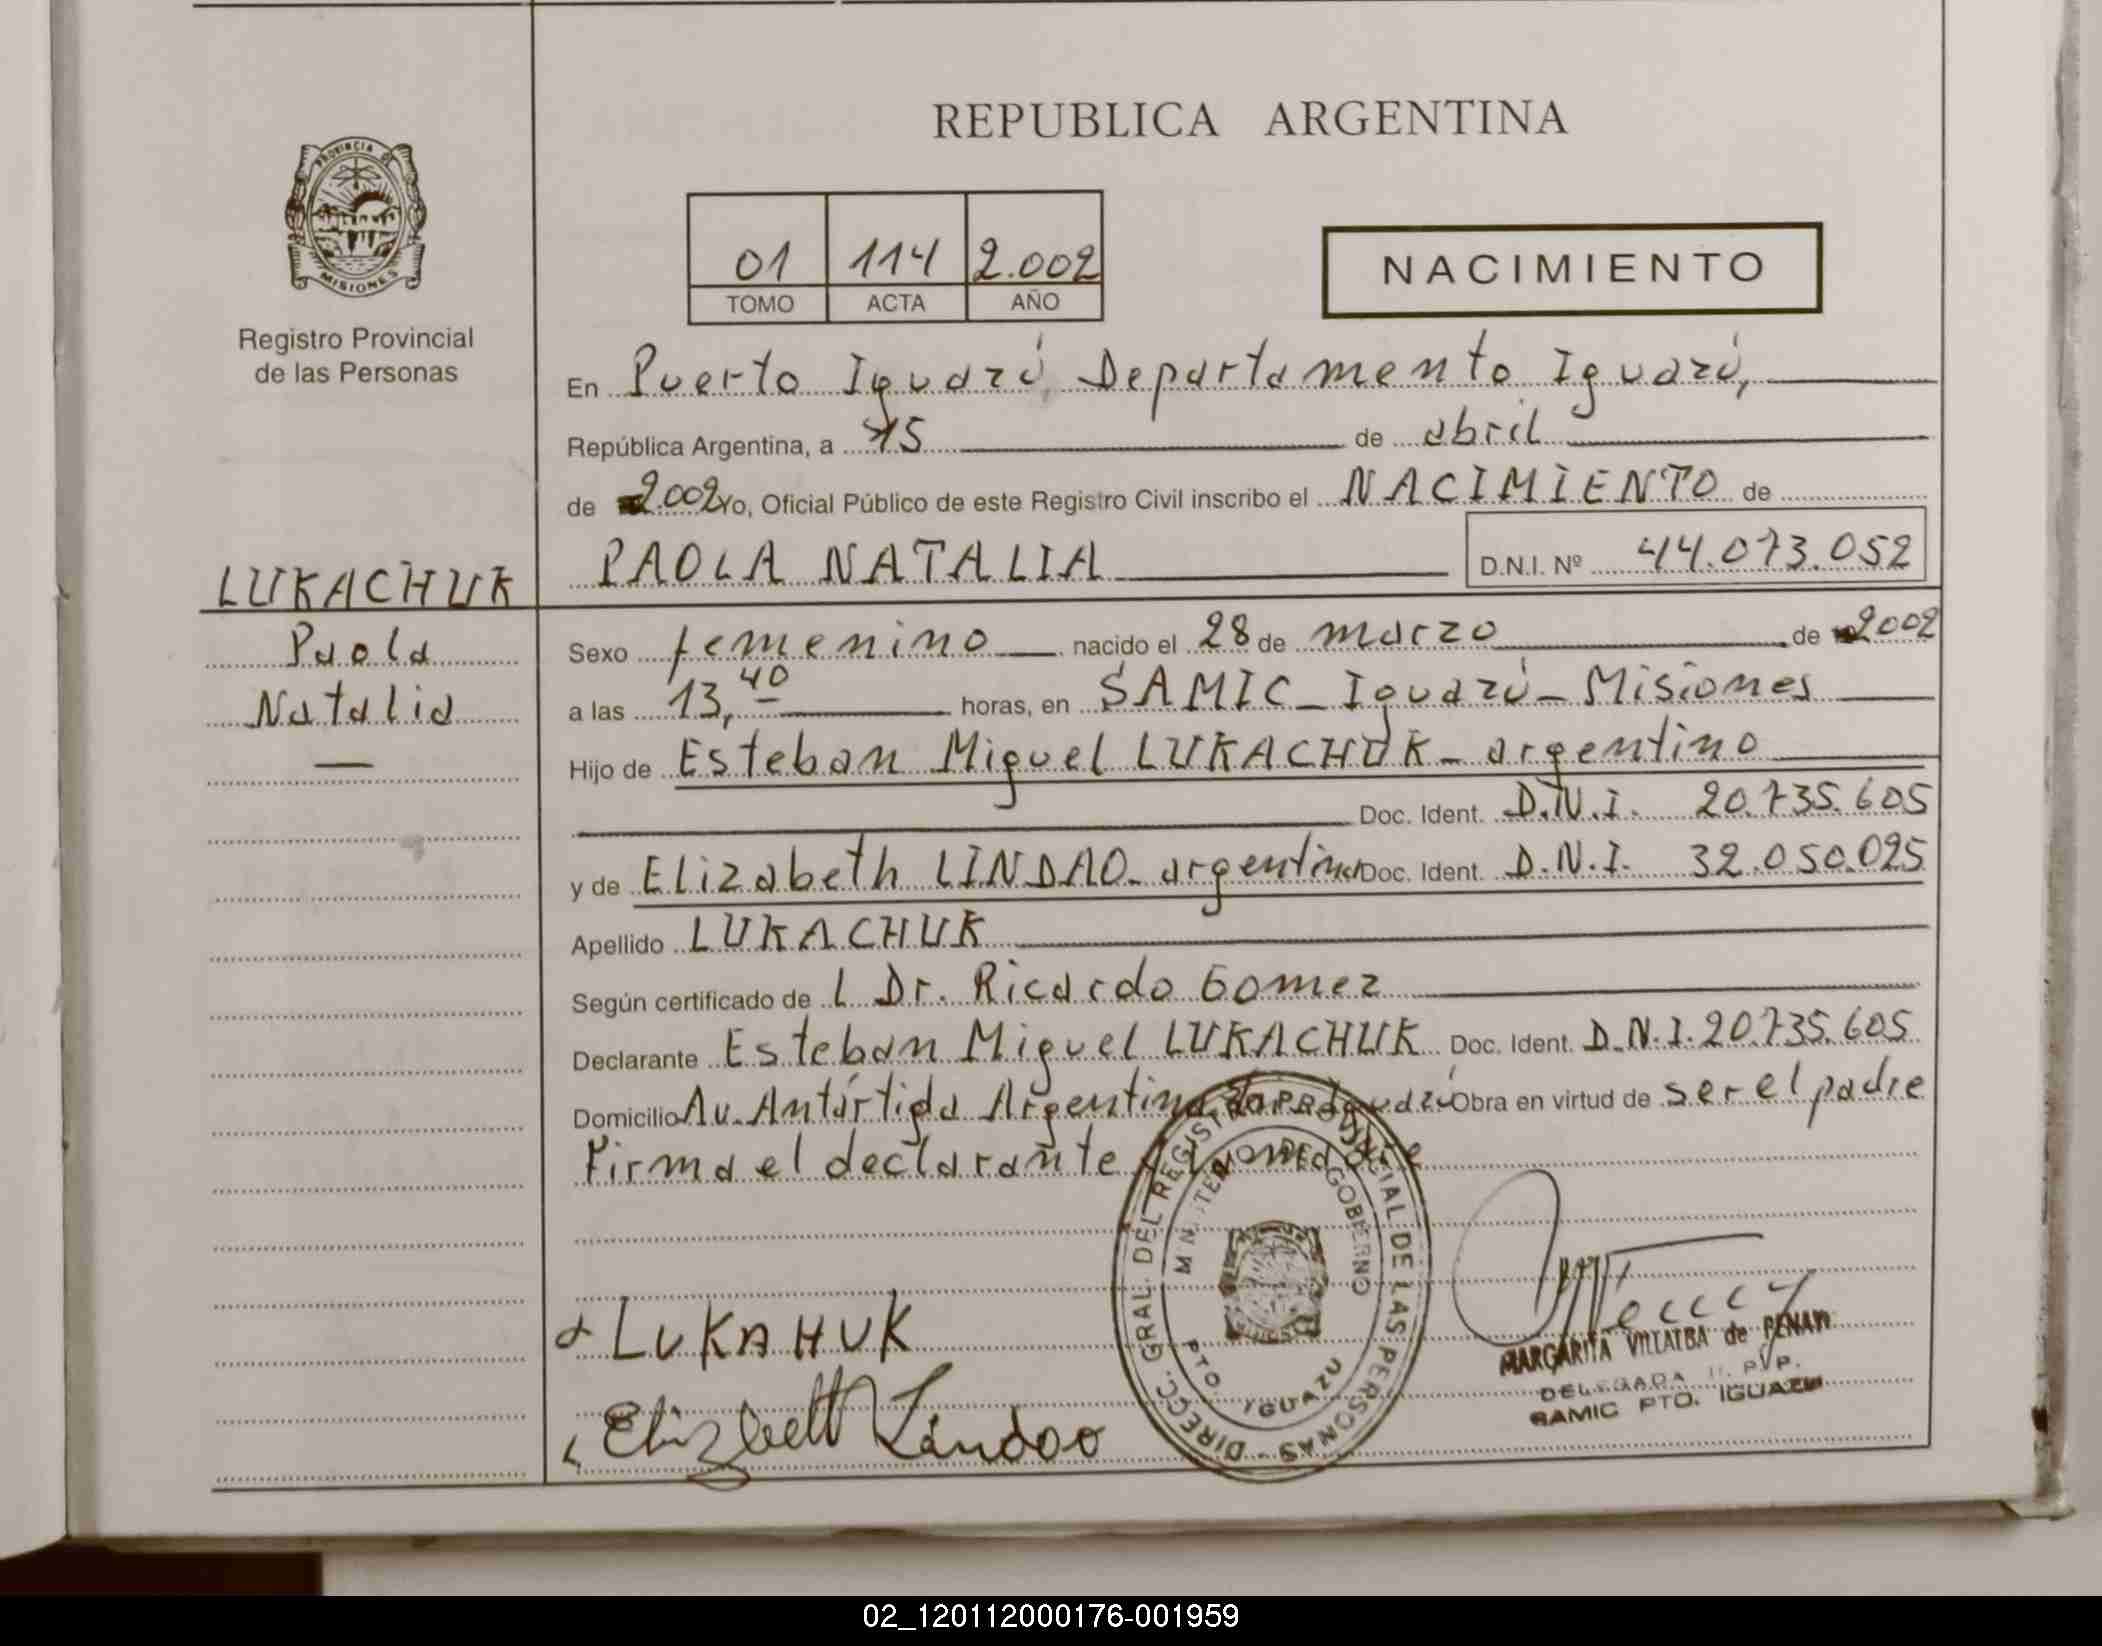 REPUBLICA ARGENTINA
PROVINCIA DE
MISIONES
Registro Provincial
de las Personas
01 114 2.002
TOMO ACTA AÑO
NACIMIENTO
En Puerto Iguazú, Departamento Iguazú,
República Argentina, a 15 de abril
de 2.002 Yo, Oficial Público de este Registro Civil inscribo el NACIMIENTO de
PAOLA NATALIA D.N.I. Nº 44.073.052
LUKACHUK
Paola
Natalia
Sexo femenino nacido el 28 de marzo de 2002
a las 13,40 horas, en SAMIC - Iguazú - Misiones
Hijo de Esteban Miguel LUKACHUK - argentino
Doc. Ident. D.N.I. 20.735.605
y de Elizabeth LINDAO - argentina Doc. Ident. D.N.I. 32.050.025
Apellido LUKACHUK
Según certificado de l Dr. Ricardo Gomez
Declarante Esteban Miguel LUKACHUK Doc. Ident. D.N.I. 20.735.605
Domicilio Av. Antártida Argentina Iguazú Obra en virtud de ser el padre
Firma el declarante
DIRECC. GRAL. DEL REGISTRO PROVINCIAL DE LAS PERSONAS
MINISTERIO DE GOBIERNO
PTO. IGUAZU
LUKAHUK
Elizbett Lindao
MARGARITA VILLALBA de
DELEGADA R. P. P.
SAMIC PTO. IGUAZU
02_120112000176-001959